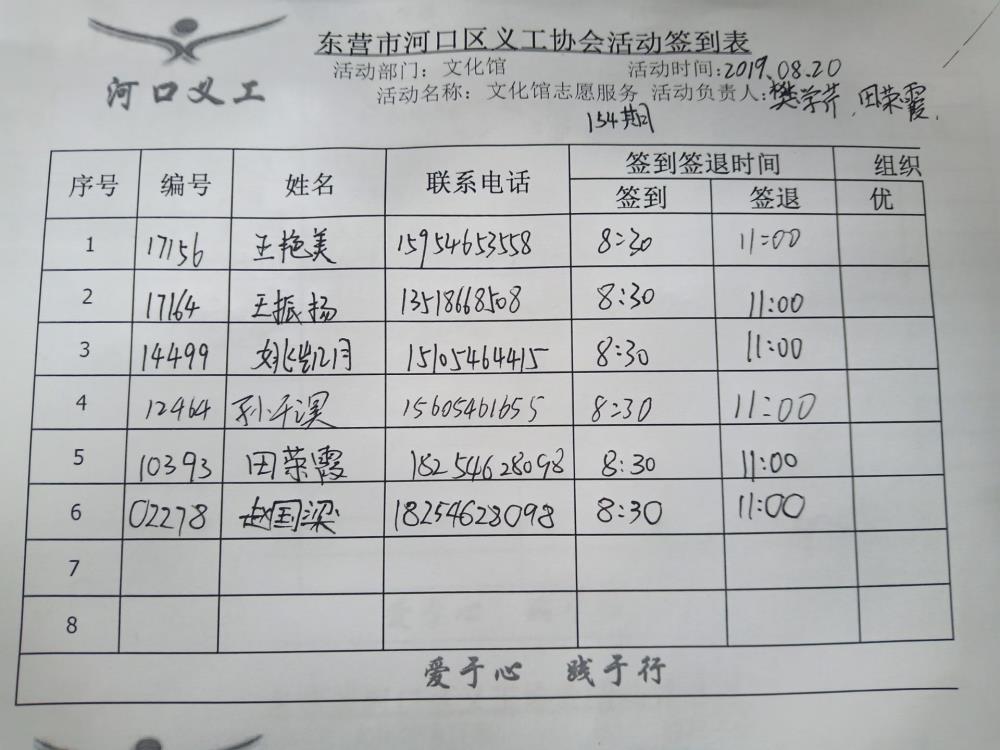 河口义工
东营市河口区义工协会活动签到表
活动部门：文化馆 活动时间：2019.08.20
活动名称：文化馆志愿服务 活动负责人：樊学芹、田荣霞.
154期
序号 编号 姓名 联系电话 签到签退时间 组织
签到 签退 优
1 17156 王艳美 15954653558 8:30 11:00
2 17164 王振扬 13518668508 8:30 11:00
3 14499 15105464415 8:30 11:00
4 12464 15605461655 8:30 11:00
5 10393 田荣霞 18254628098 8:30 11:00
6 02278 赵国梁 18254628098 8:30 11:00
7
8
爱于心 践于行